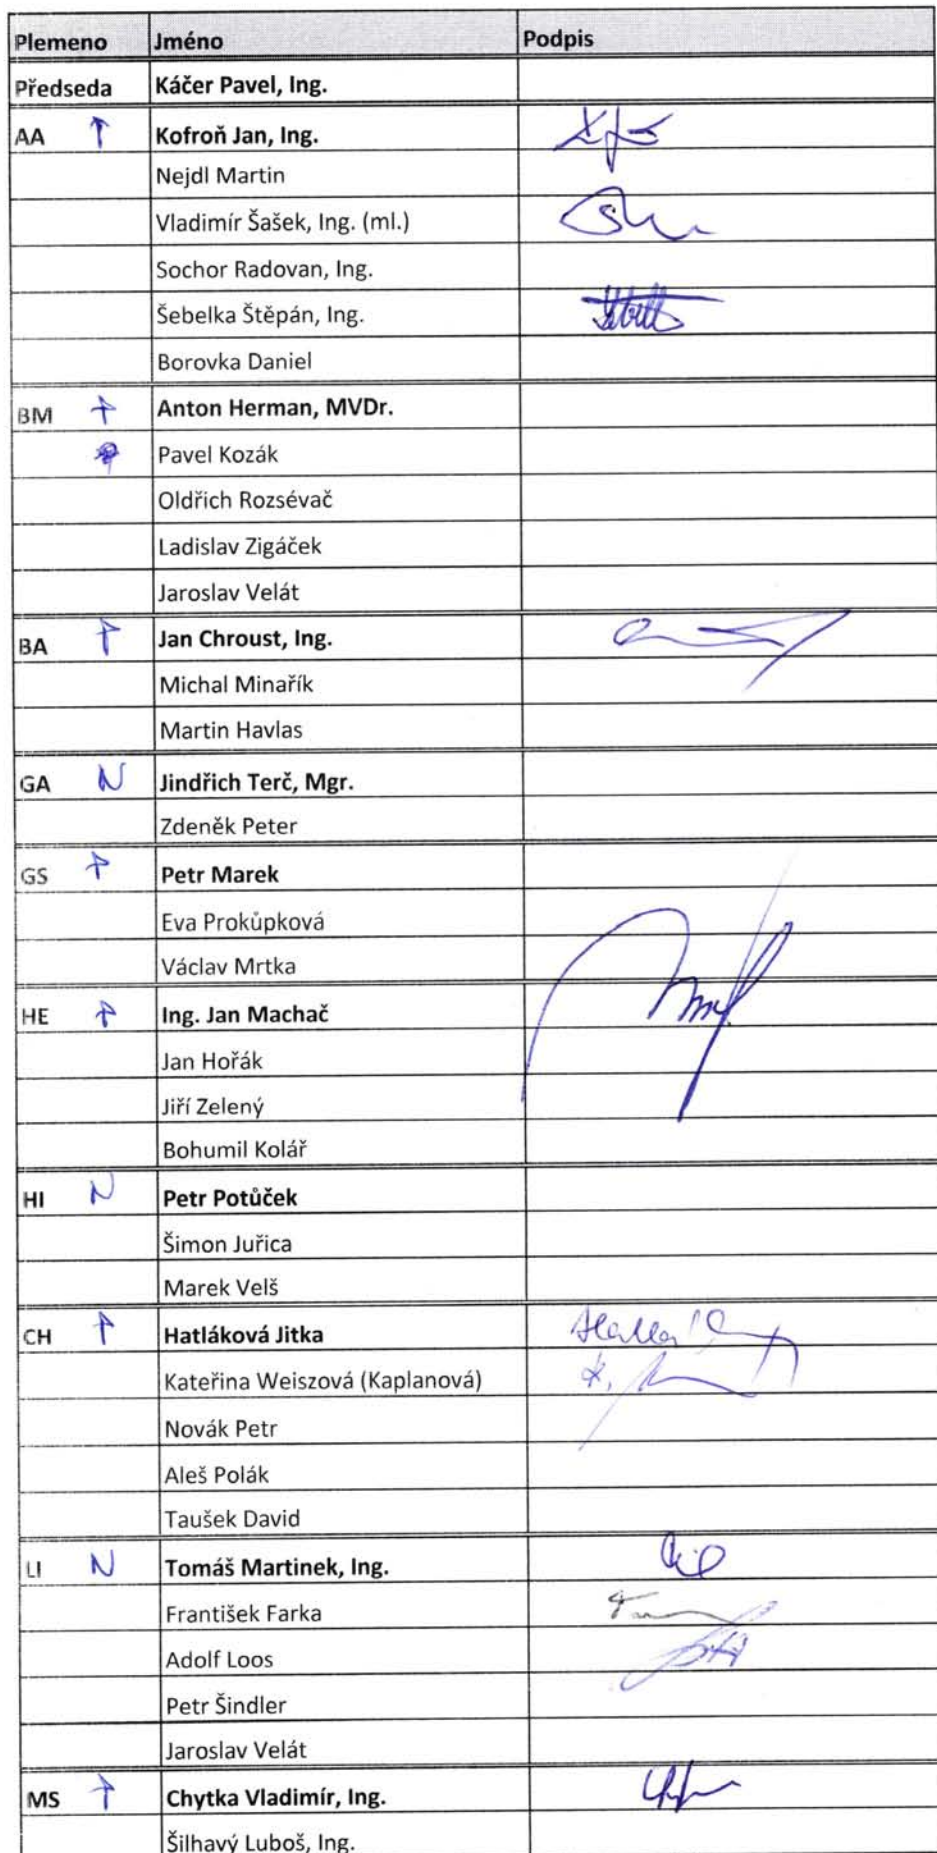 Plemeno Jméno Podpis
Předseda Káčer Pavel, Ing.
AA Kofroň Jan, Ing.
Nejdl Martin
Vladimír Šašek, Ing. (ml.)
Sochor Radovan, Ing.
Šebelka Štěpán, Ing.
Borovka Daniel
BM Anton Herman, MVDr.
Pavel Kozák
Oldřich Rozsévač
Ladislav Zigáček
Jaroslav Velát
BA Jan Chroust, Ing.
Michal Minařík
Martin Havlas
GA N Jindřich Terč, Mgr.
Zdeněk Peter
GS Petr Marek
Eva Prokůpková
Václav Mrtka
HE Ing. Jan Machač
Jan Hořák
Jiří Zelený
Bohumil Kolář
HI N Petr Potůček
Šimon Juřica
Marek Velš
CH Hatláková Jitka
Kateřina Weiszová (Kaplanová)
Novák Petr
Aleš Polák
Taušek David
LI N Tomáš Martinek, Ing.
František Farka
Adolf Loos
Petr Šindler
Jaroslav Velát
MS Chytka Vladimír, Ing.
Šilhavý Luboš, Ing.